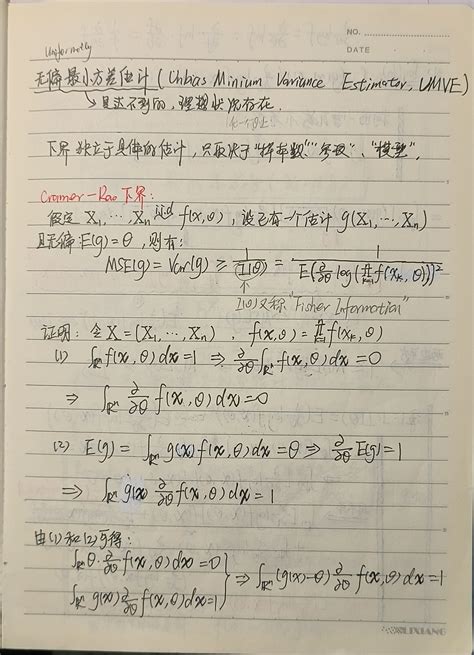 NO.
DATE
Uniformly
无偏最小方差估计 (Unbias Minium Variance Estimator, UMVE)
↳ 是达不到的,理想状况存在.
下界独立于具体的估计,只取决于"样本数"、"参数"、"模型".
Cramer-Rao 下界:
假定 X₁, ⋯, Xₙ iid f(x,θ), 设已有一个估计 g(X₁, ⋯, Xₙ)
且无偏: E(g)=θ, 则有:
MSE(g) = Var(g) ≥ 1/I(θ) = 1/E(∂/∂θ log(∏ₖ₌₁ⁿ f(xₖ, θ)))²
I(θ)又称"Fisher Information"
证明: 令 X = (X₁, ⋯, Xₙ), f(x,θ) = ∏ₖ₌₁ⁿ f(xₖ, θ)
(1) ∫ℝⁿ f(x,θ)dx=1 ⇒ ∂/∂θ ∫ℝⁿ f(x,θ)dx=0
⇒ ∫ℝⁿ ∂/∂θ f(x,θ)dx=0
(2) E(g) = ∫ℝⁿ g(x)f(x,θ)dx=θ ⇒ ∂/∂θ E(g)=1
⇒ ∫ℝⁿ g(x) ∂/∂θ f(x,θ)dx=1
由(1)和(2)可得:
∫ℝⁿ θ·∂/∂θ f(x,θ)dx=0
∫ℝⁿ g(x) ∂/∂θ f(x,θ)dx=1 } ⇒ ∫ℝⁿ (g(x)-θ) ∂/∂θ f(x,θ)dx=1
LIXIANG